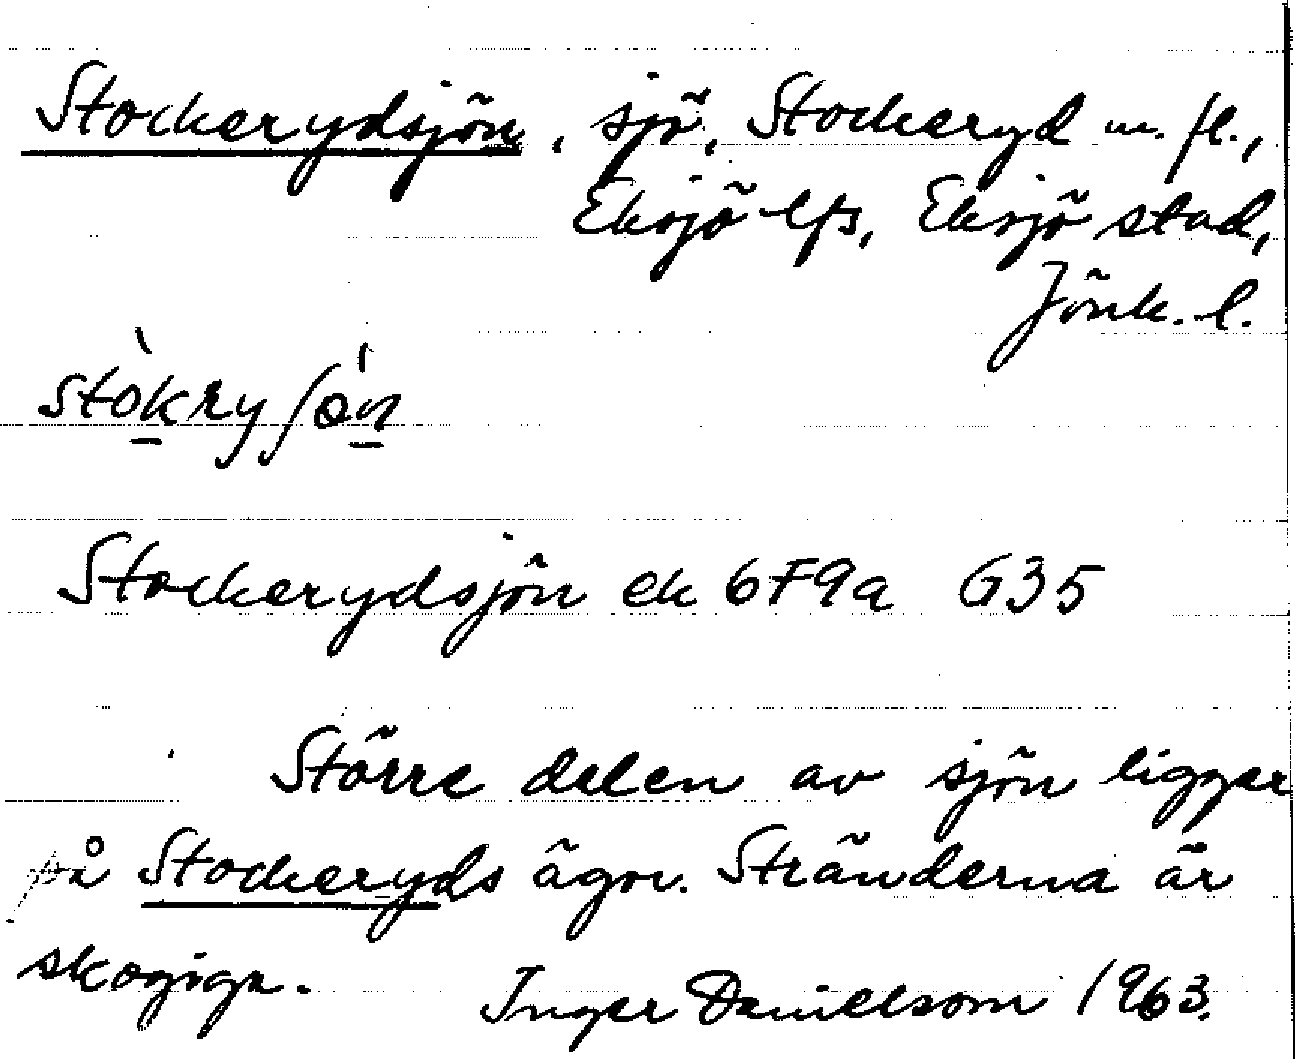 Stockerydsjön, sjö, Stockeryd m. fl.,
Eksjö lfs, Eksjö stad,
Jönk. l.
stòkryʃөn
Stockerydsjön ek 6F9a G35
Större delen av sjön ligger
på Stockeryds ägor. Stränderna är
skogiga.
Inger Danielsson 1963.